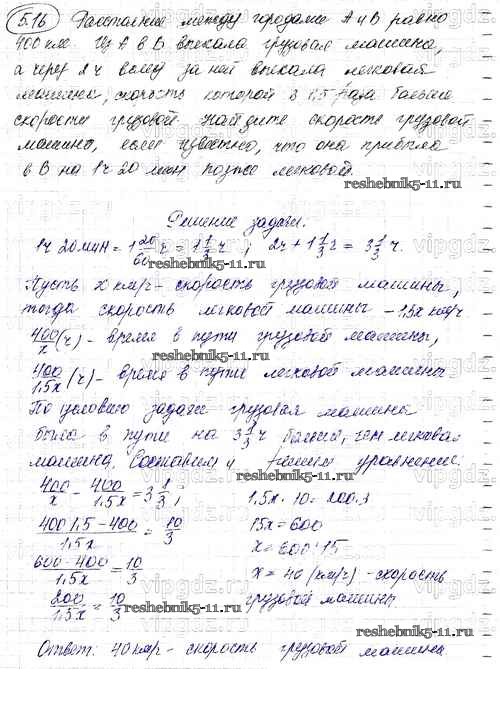 5.16 Расстояние между городами А и В равно
400 км. Из А в В выехала грузовая машина,
а через 2 ч вслед за ней выехала легковая
машина, скорость которой в 1,5 раза больше
скорости грузовой. Найдите скорость грузовой
машины, если известно, что она прибыла
в В на 1 ч 20 мин позже легковой.
reshebnik5-11.ru
Решение задачи.
1ч 20мин = 1 20/60 ч = 1 1/3 ч ; 2ч + 1 1/3 ч = 3 1/3 ч.
Пусть x км/ч - скорость грузовой машины,
тогда скорость легковой машины - 1,5x км/ч
400/x (ч) - время в пути грузовой машины,
400/1,5x (ч) - время в пути легковой машины
reshebnik5-11.ru
По условию задачи грузовая машина
была в пути на 3 1/3 ч больше, чем легковая
машина. Составим и решим уравнение:
reshebnik5-11.ru
400/x - 400/1,5x = 3 1/3 ;
400·1,5 - 400/1,5x = 10/3
600 - 400/1,5x = 10/3
200/1,5x = 10/3
1,5x · 10 = 200·3
15x = 600
x = 600 : 15
x = 40 (км/ч) - скорость
грузовой машины
reshebnik5-11.ru
reshebnik5-11.ru
Ответ: 40 км/ч - скорость грузовой машины
vipgdz.ru